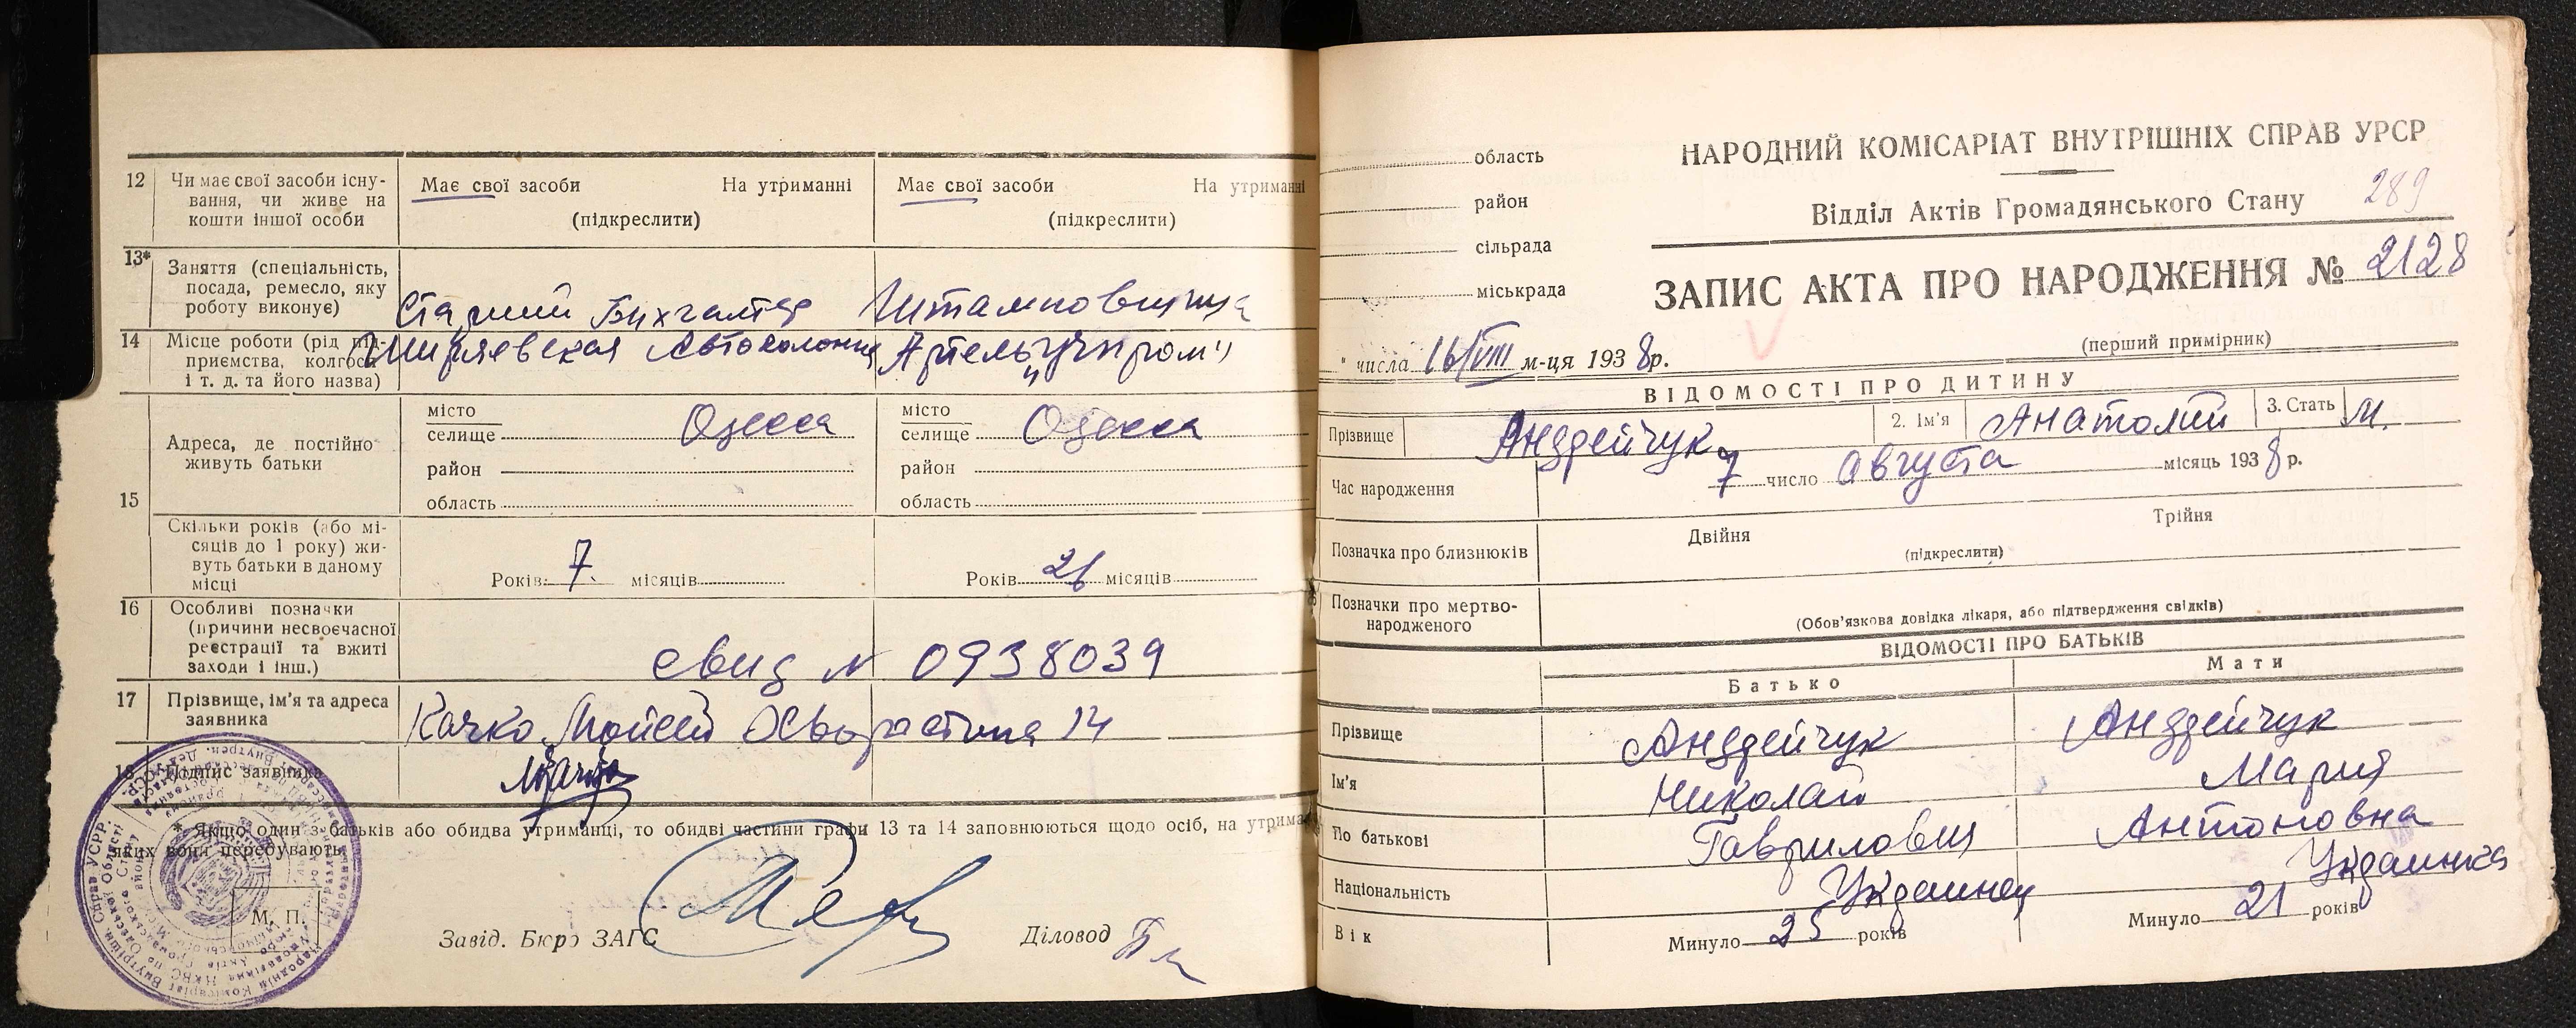 12 Чи має свої засоби існу-
вання, чи живе на
кошти іншої особи
Має свої засоби На утриманні
(підкреслити)
Має свої засоби На утриманні
(підкреслити)
13* Заняття (спеціальність,
посада, ремесло, яку
роботу виконує)
Старший Бухгалтер
Штамповщица
14 Місце роботи (рід під-
приємства, колгосп
і т. д. та його назва)
Ширяевская Автоколонна
Артель „Учпром"
15 Адреса, де постійно
живуть батьки
місто
селище Одесса
район
область
місто
селище Одесса
район
область
Скільки років (або мі-
сяців до 1 року) жи-
вуть батьки в даному
місці
Років 7. місяців
Років 21 місяців
16 Особливі позначки
(причини несвоєчасної
реєстрації та вжиті
заходи і інш.)
Свид N 0938039
17 Прізвище, ім'я та адреса
заявника
Качко Мойсей 14
18 Підпис заявника
* Якщо один з батьків або обидва утриманці, то обидві частини графи 13 та 14 заповнюються щодо осіб, на утрима
яких вони перебувають
М. П.
Завід. Бюро ЗАГС
Діловод
область
район
сільрада
міськрада
НАРОДНИЙ КОМІСАРІАТ ВНУТРІШНІХ СПРАВ УРСР
Відділ Актів Громадянського Стану 289
ЗАПИС АКТА ПРО НАРОДЖЕННЯ № 2128
(перший примірник)
" числа 16/VIII м-ця 1938р.
ВІДОМОСТІ ПРО ДИТИНУ
Прізвище Андрейчук 2. Ім'я Анатолий 3. Стать М.
Час народження 7 число Августа місяць 1938 р.
Позначка про близнюків Двійня Трійня
(підкреслити)
Позначки про мертво-
народженого
(Обов'язкова довідка лікаря, або підтвердження свідків)
ВІДОМОСТІ ПРО БАТЬКІВ
Батько Мати
Прізвище Андрейчук Андрейчук
Ім'я Николай Мария
По батькові Гаврилович Антоновна
Національність Украинец Украинка
Вік Минуло 25 років Минуло 21 років